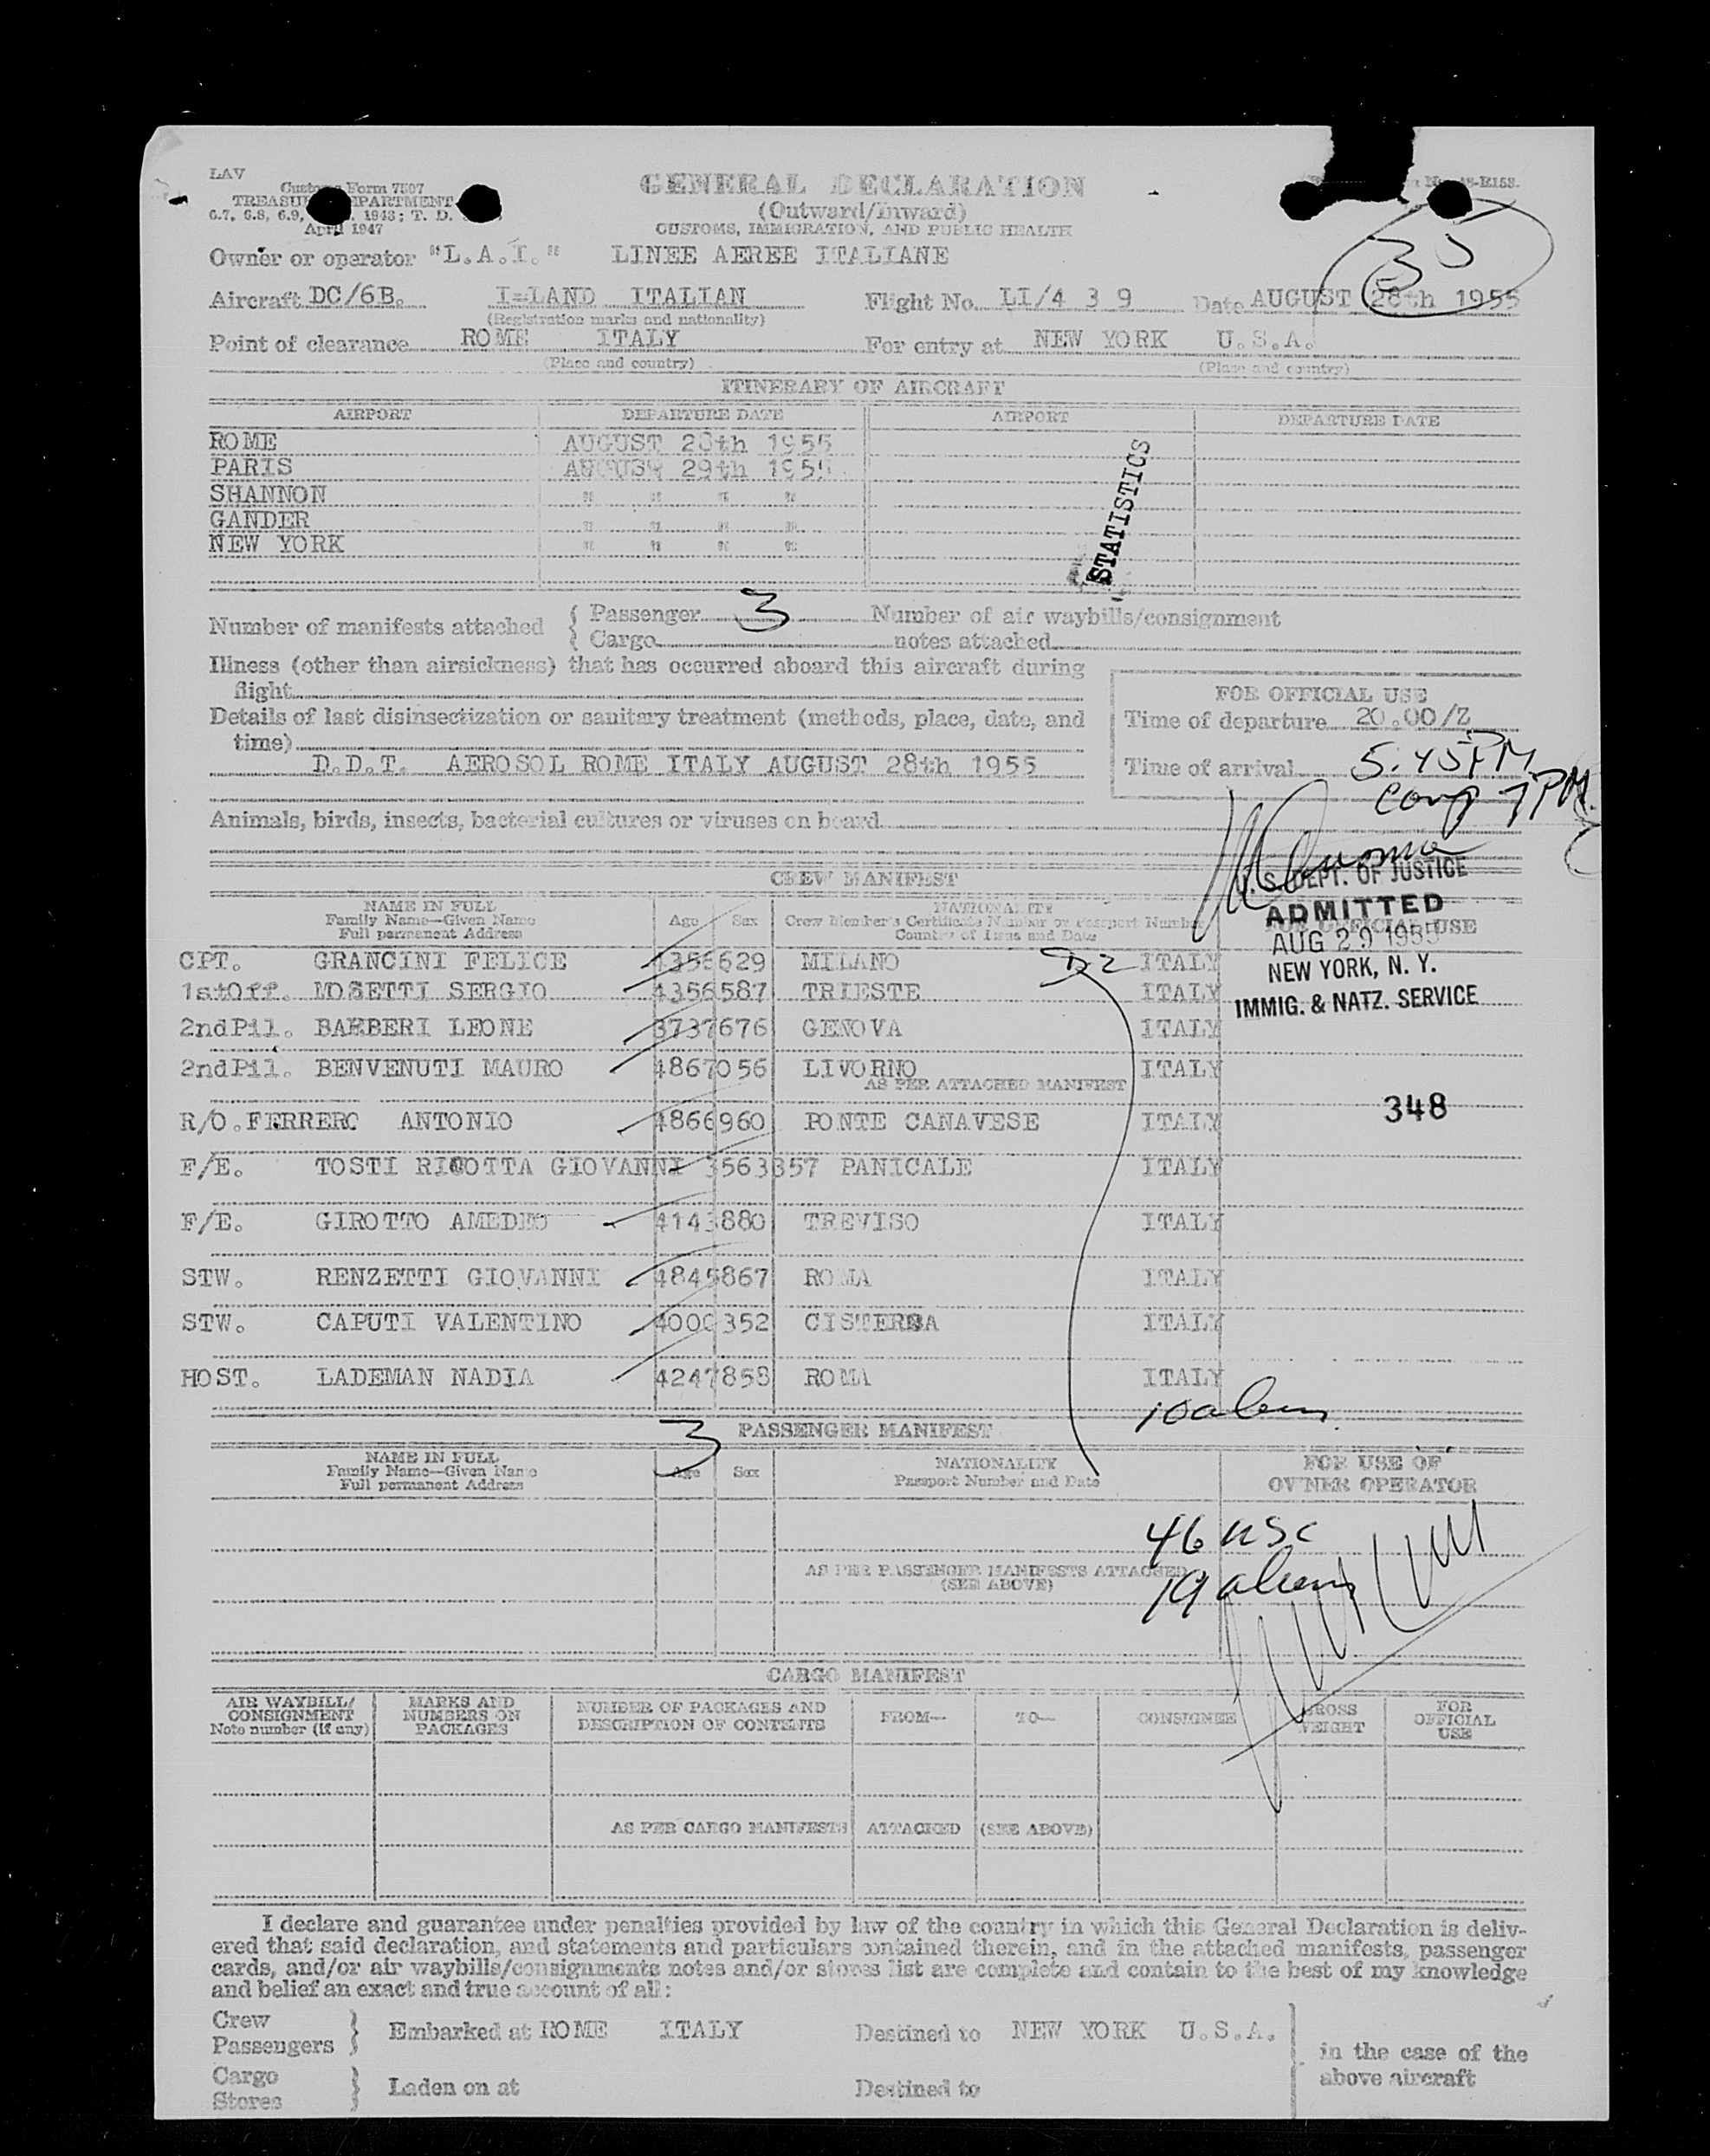 LAV
Customs Form 7507
TREASURY DEPARTMENT
6.7, 6.8, 6.9, 1948; T. D.
April 1947
GENERAL DECLARATION
(Outward/Inward)
CUSTOMS, IMMIGRATION, AND PUBLIC HEALTH
35
Owner or operator "L.A.I." LINEE AEREE ITALIANE
Aircraft DC/6B. I=LAND ITALIAN Flight No. LI/4 3 9 Date AUGUST 28th 1955
(Registration marks and nationality)
Point of clearance ROME ITALY For entry at NEW YORK U.S.A.
(Place and country) (Place and country)
ITINERARY OF AIRCRAFT
AIRPORT DEPARTURE DATE AIRPORT DEPARTURE DATE
ROME AUGUST 28th 1955
PARIS AUGUST 29th 1955
SHANNON " " " "
GANDER " " " "
NEW YORK " " " "
STATISTICS
Number of manifests attached { Passenger 3 Number of air waybills/consignment
{ Cargo notes attached
Illness (other than airsickness) that has occurred aboard this aircraft during
flight
Details of last disinsectization or sanitary treatment (methods, place, date, and
time)
D.D.T. AEROSOL ROME ITALY AUGUST 28th 1955
FOR OFFICIAL USE
Time of departure 20.00/Z
Time of arrival 5.45PM
comp 7PM
Animals, birds, insects, bacterial cultures or viruses on board
CREW MANIFEST
NAME IN FULL
Family Name—Given Name
Full permanent Address
Age Sex
NATIONALITY
Crew Member's Certificate Number or Passport Number
Country of Issue and Date
FOR OFFICIAL USE
U.S. DEPT. OF JUSTICE
ADMITTED
AUG 29 1955
NEW YORK, N. Y.
IMMIG. & NATZ. SERVICE
CPT. GRANCINI FELICE 4356629 MILANO D2 ITALY
1stOff. MOSETTI SERGIO 4356587 TRIESTE ITALY
2ndPil. BARBERI LEONE 3737676 GENOVA ITALY
2ndPil. BENVENUTI MAURO 4867056 LIVORNO ITALY
AS PER ATTACHED MANIFEST
348
R/O. FERRERO ANTONIO 4866960 PONTE CANAVESE ITALY
F/E. TOSTI RICOTTA GIOVANNI 3563857 PANICALE ITALY
F/E. GIROTTO AMEDEO 4143880 TREVISO ITALY
STW. RENZETTI GIOVANNI 4845867 ROMA ITALY
STW. CAPUTI VALENTINO 4000352 CISTERNA ITALY
HOST. LADEMAN NADIA 4247858 ROMA ITALY
10 aliens
3
PASSENGER MANIFEST
NAME IN FULL
Family Name—Given Name
Full permanent Address
Age Sex
NATIONALITY
Passport Number and Date
FOR USE OF
OWNER OPERATOR
46 USC
AS PER PASSENGER MANIFESTS ATTACHED
(SEE ABOVE)
19 aliens
CARGO MANIFEST
AIR WAYBILL/
CONSIGNMENT
Note number (if any)
MARKS AND
NUMBERS ON
PACKAGES
NUMBER OF PACKAGES AND
DESCRIPTION OF CONTENTS
FROM—
TO—
CONSIGNEE
GROSS
WEIGHT
FOR
OFFICIAL
USE
AS PER CARGO MANIFESTS ATTACHED (SEE ABOVE)
I declare and guarantee under penalties provided by law of the country in which this General Declaration is deliv-
ered that said declaration, and statements and particulars contained therein, and in the attached manifests, passenger
cards, and/or air waybills/consignments notes and/or stores list are complete and contain to the best of my knowledge
and belief an exact and true account of all:
Crew
Passengers } Embarked at ROME ITALY Destined to NEW YORK U.S.A.
in the case of the
above aircraft
Cargo
Stores } Laden on at Destined to